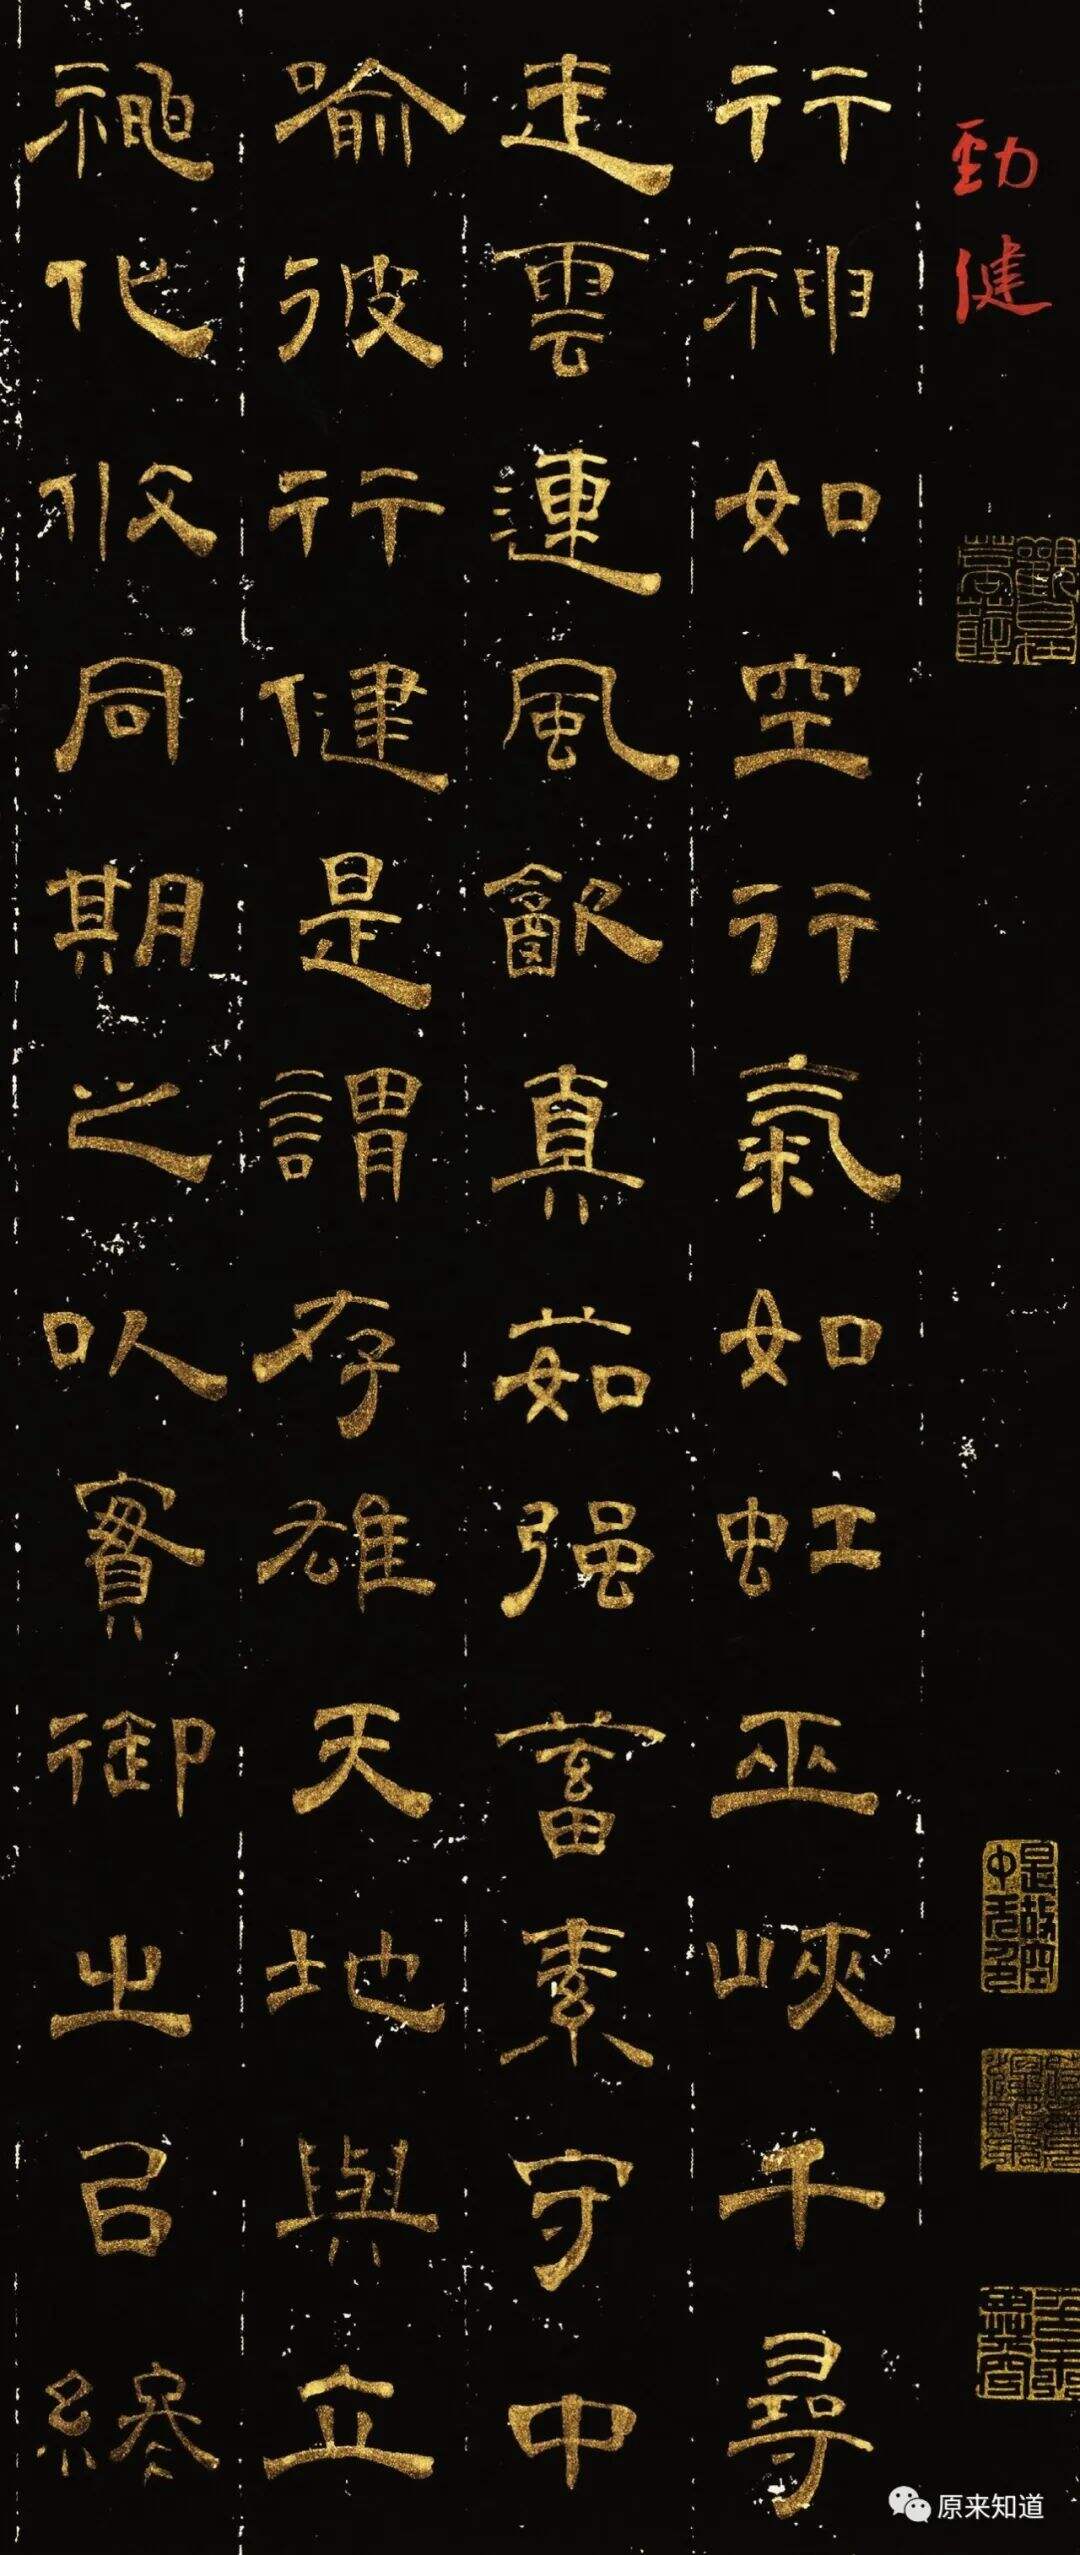 勁健
觀自在菩薩
是故空中无色
行神如空行氣如虹巫峽千尋
走雲連風㱃真茹强蓄素守中
喻彼行健是謂存雄天地與立
神化攸同期之以實御之以終
原来知道